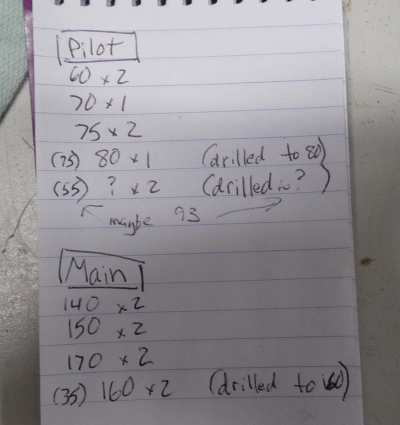 Pilot
60 x 2
70 x 1
75 x 2
(75) 80 x 1 (drilled to 80)
(55) ? x 2 (drilled to ?)
maybe 93
Main
140 x 2
150 x 2
170 x 2
(35) 160 x 2 (drilled to 160)